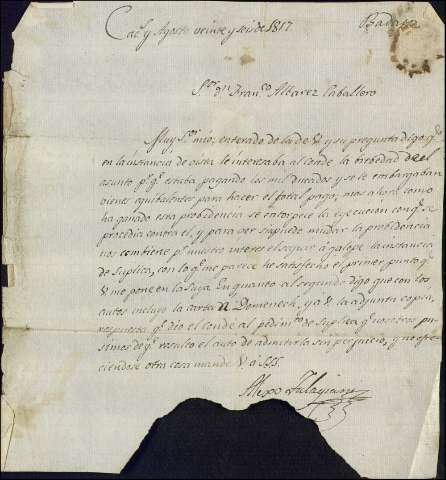 Cac.s y Agosto veinte y seis de 1817
Badajoz
S.or d.n Fran.co Albarez Caballero
Muy S.or mio: enterado de la de V y su pregunta digo: q.e
en la instancia de vista le interesaba al conde la brebedad del
asunto p.r q.e estaba pagando los mil ducados y se le embargaban
vienes equibalentes para hacer el total pago, mas ahora como
ha ganado esta probidencia se entorpece la ejecucion con q.e se
procedia contra el, y para ver si puede mudar la probidencia
nos combiene p.r nuestro interes el seguir á galope la instancia
de suplica, con lo q.e me parece he satisfecho el primer punto q.e
V me pone en la suya. En quanto al segundo digo que con los
autos incluyo la carta Domenech, ya V la adjunta copia,
respuesta q.e dio el conde al pedim.to de suplica q.e nosotros pu-
simos de q.e resulto el auto de admitirla sin perjuicio, y no ofre-
ciendose otra cosa mande V á SSS.
Alexo